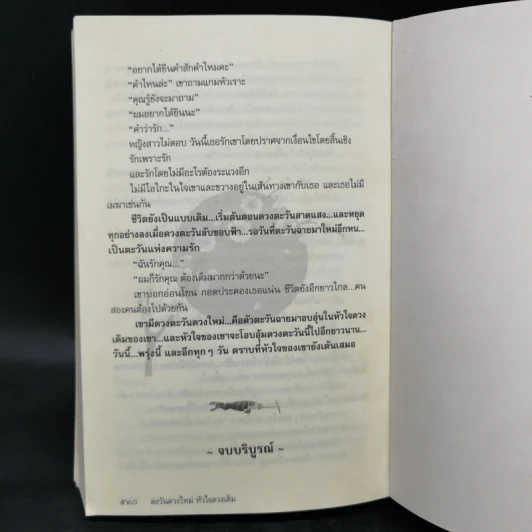 “อยากได้ยินคำสักคำไหมคะ”
“คำไหนล่ะ” เขาถามแกมหัวเราะ
“คุณรู้ยังจะมาถาม”
“ผมอยากได้ยินนะ”
“คำว่ารัก...”
หญิงสาวไม่ตอบ วันนี้เธอรักเขาโดยปราศจากเงื่อนไขโดยสิ้นเชิง
รักเพราะรัก
และรักโดยไม่มีอะไรต้องระแวงอีก
ไม่มีโอไกะในใจเขาและขวางอยู่ในเส้นทางเขากับเธอ และเธอไม่มี
เมฆาเช่นกัน
ชีวิตยังเป็นแบบเดิม...เริ่มต้นตอนดวงตะวันสาดแสง...และหยุด
ทุกอย่างลงเมื่อดวงตะวันลับขอบฟ้า...รอวันที่ตะวันฉายมาใหม่อีกหน...
เป็นตะวันแห่งความรัก
“ฉันรักคุณ...”
“ผมก็รักคุณ ต้องเติมมากกว่าด้วยนะ”
เขาบอกอ่อนโยน กอดประคองเธอแน่น ชีวิตยังอีกยาวไกล...คน
สองคนต้องไปด้วยกัน
เขามีดวงตะวันดวงใหม่...คือตัวตะวันฉายมาอบอุ่นในหัวใจดวง
เดิมของเขา...และหัวใจของเขาจะโอบอุ้มดวงตะวันนี้ไปอีกยาวนาน...
วันนี้...พรุ่งนี้ และอีกทุก ๆ วัน ตราบที่หัวใจของเขายังเต้นเสมอ
~ จบบริบูรณ์ ~
๕๖๐ ตะวันดวงใหม่ หัวใจดวงเดิม